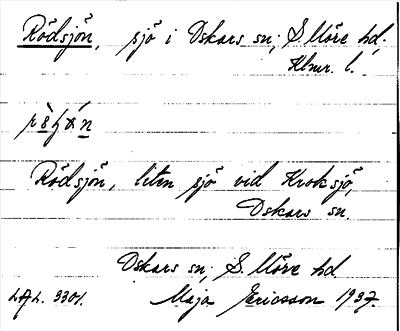 Rödsjön, sjö i Oskars sn; S. Möre hd,
Klmr. l.
Rödsjön, liten sjö vid Kroksjö,
Oskars sn.
Oskars sn; S. Möre hd
Maja Ericsson 1937.